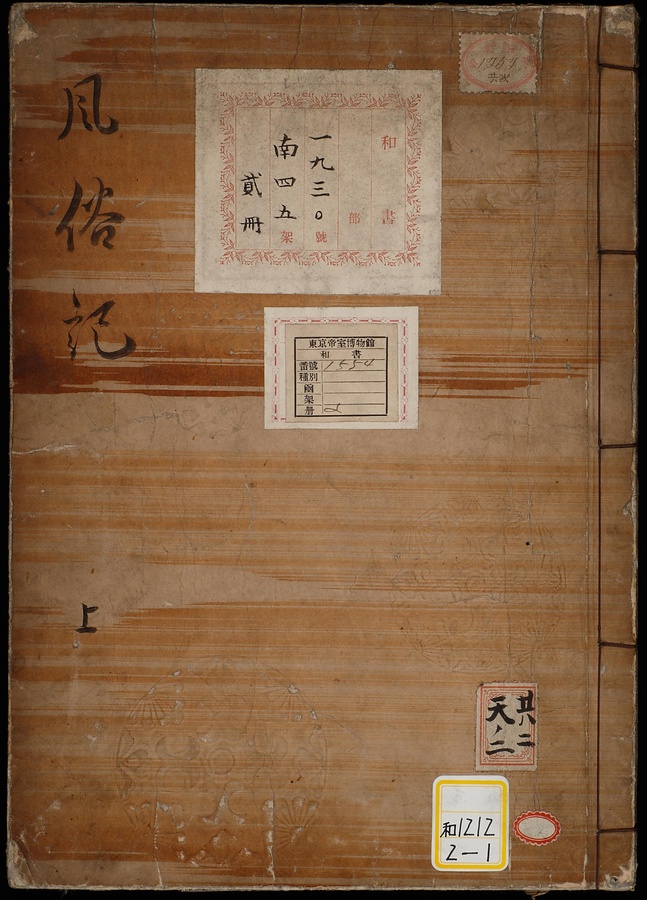 風俗記
上
和書
部
一九三〇號
南四五架
貳冊
東京帝室博物館
和書
番號 1554
種別
凾
架
册 2
其ノ二
天ノ二
和1212
2-1